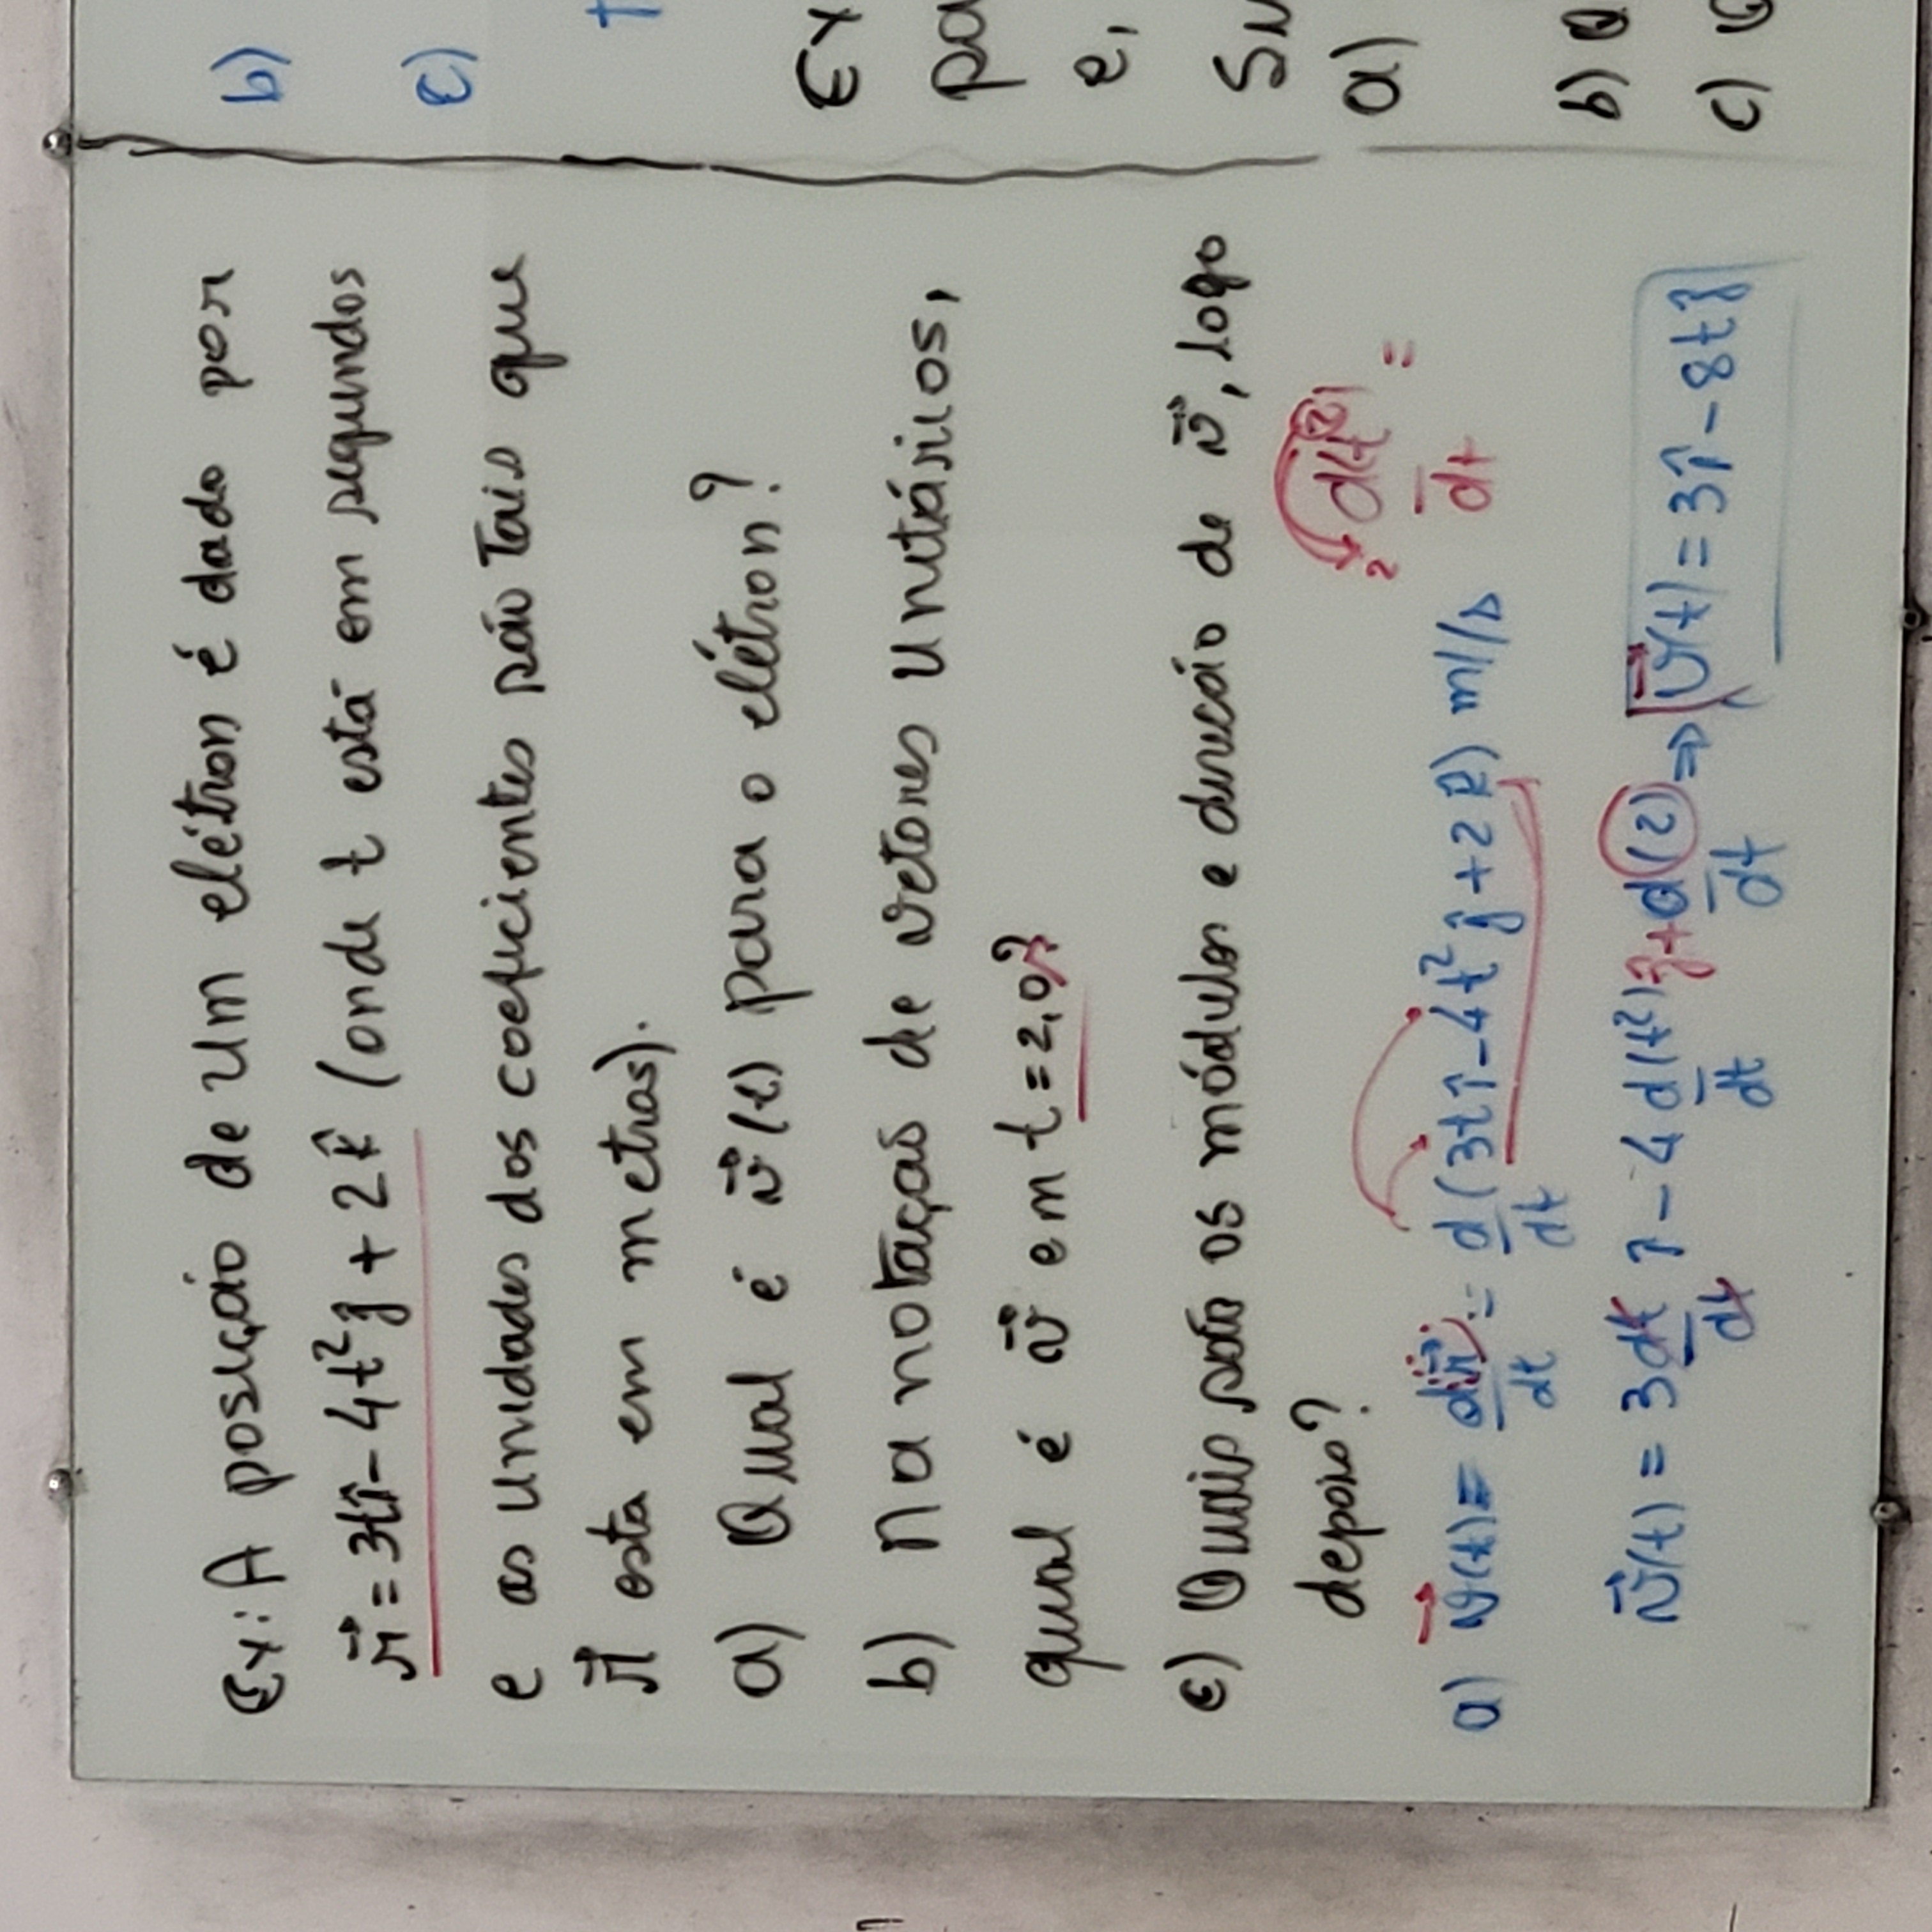 Ex: A posição de um elétron é dado por
r⃗ = 3tî - 4t²ĵ + 2k̂ (onde t está em segundos
e as unidades dos coeficientes são Tais que
r⃗ esta em metros).
a) Qual é v⃗(t) para o elétron?
b) Na notação de vetores unitários,
qual é v⃗ em t = 2,0?
c) Quais são os módulos e direção de v⃗, logo
depois?
d(t²) =
dt
a) v⃗(t) = dr⃗/dt = d/dt (3tî - 4t²ĵ + 2k̂) m/s
v⃗(t) = 3dt/dt î - 4 d(t²)/dt ĵ + d(2)/dt ⇒ v⃗(t) = 3î - 8tĵ
b)
c)
Ex
a)
b)
c)